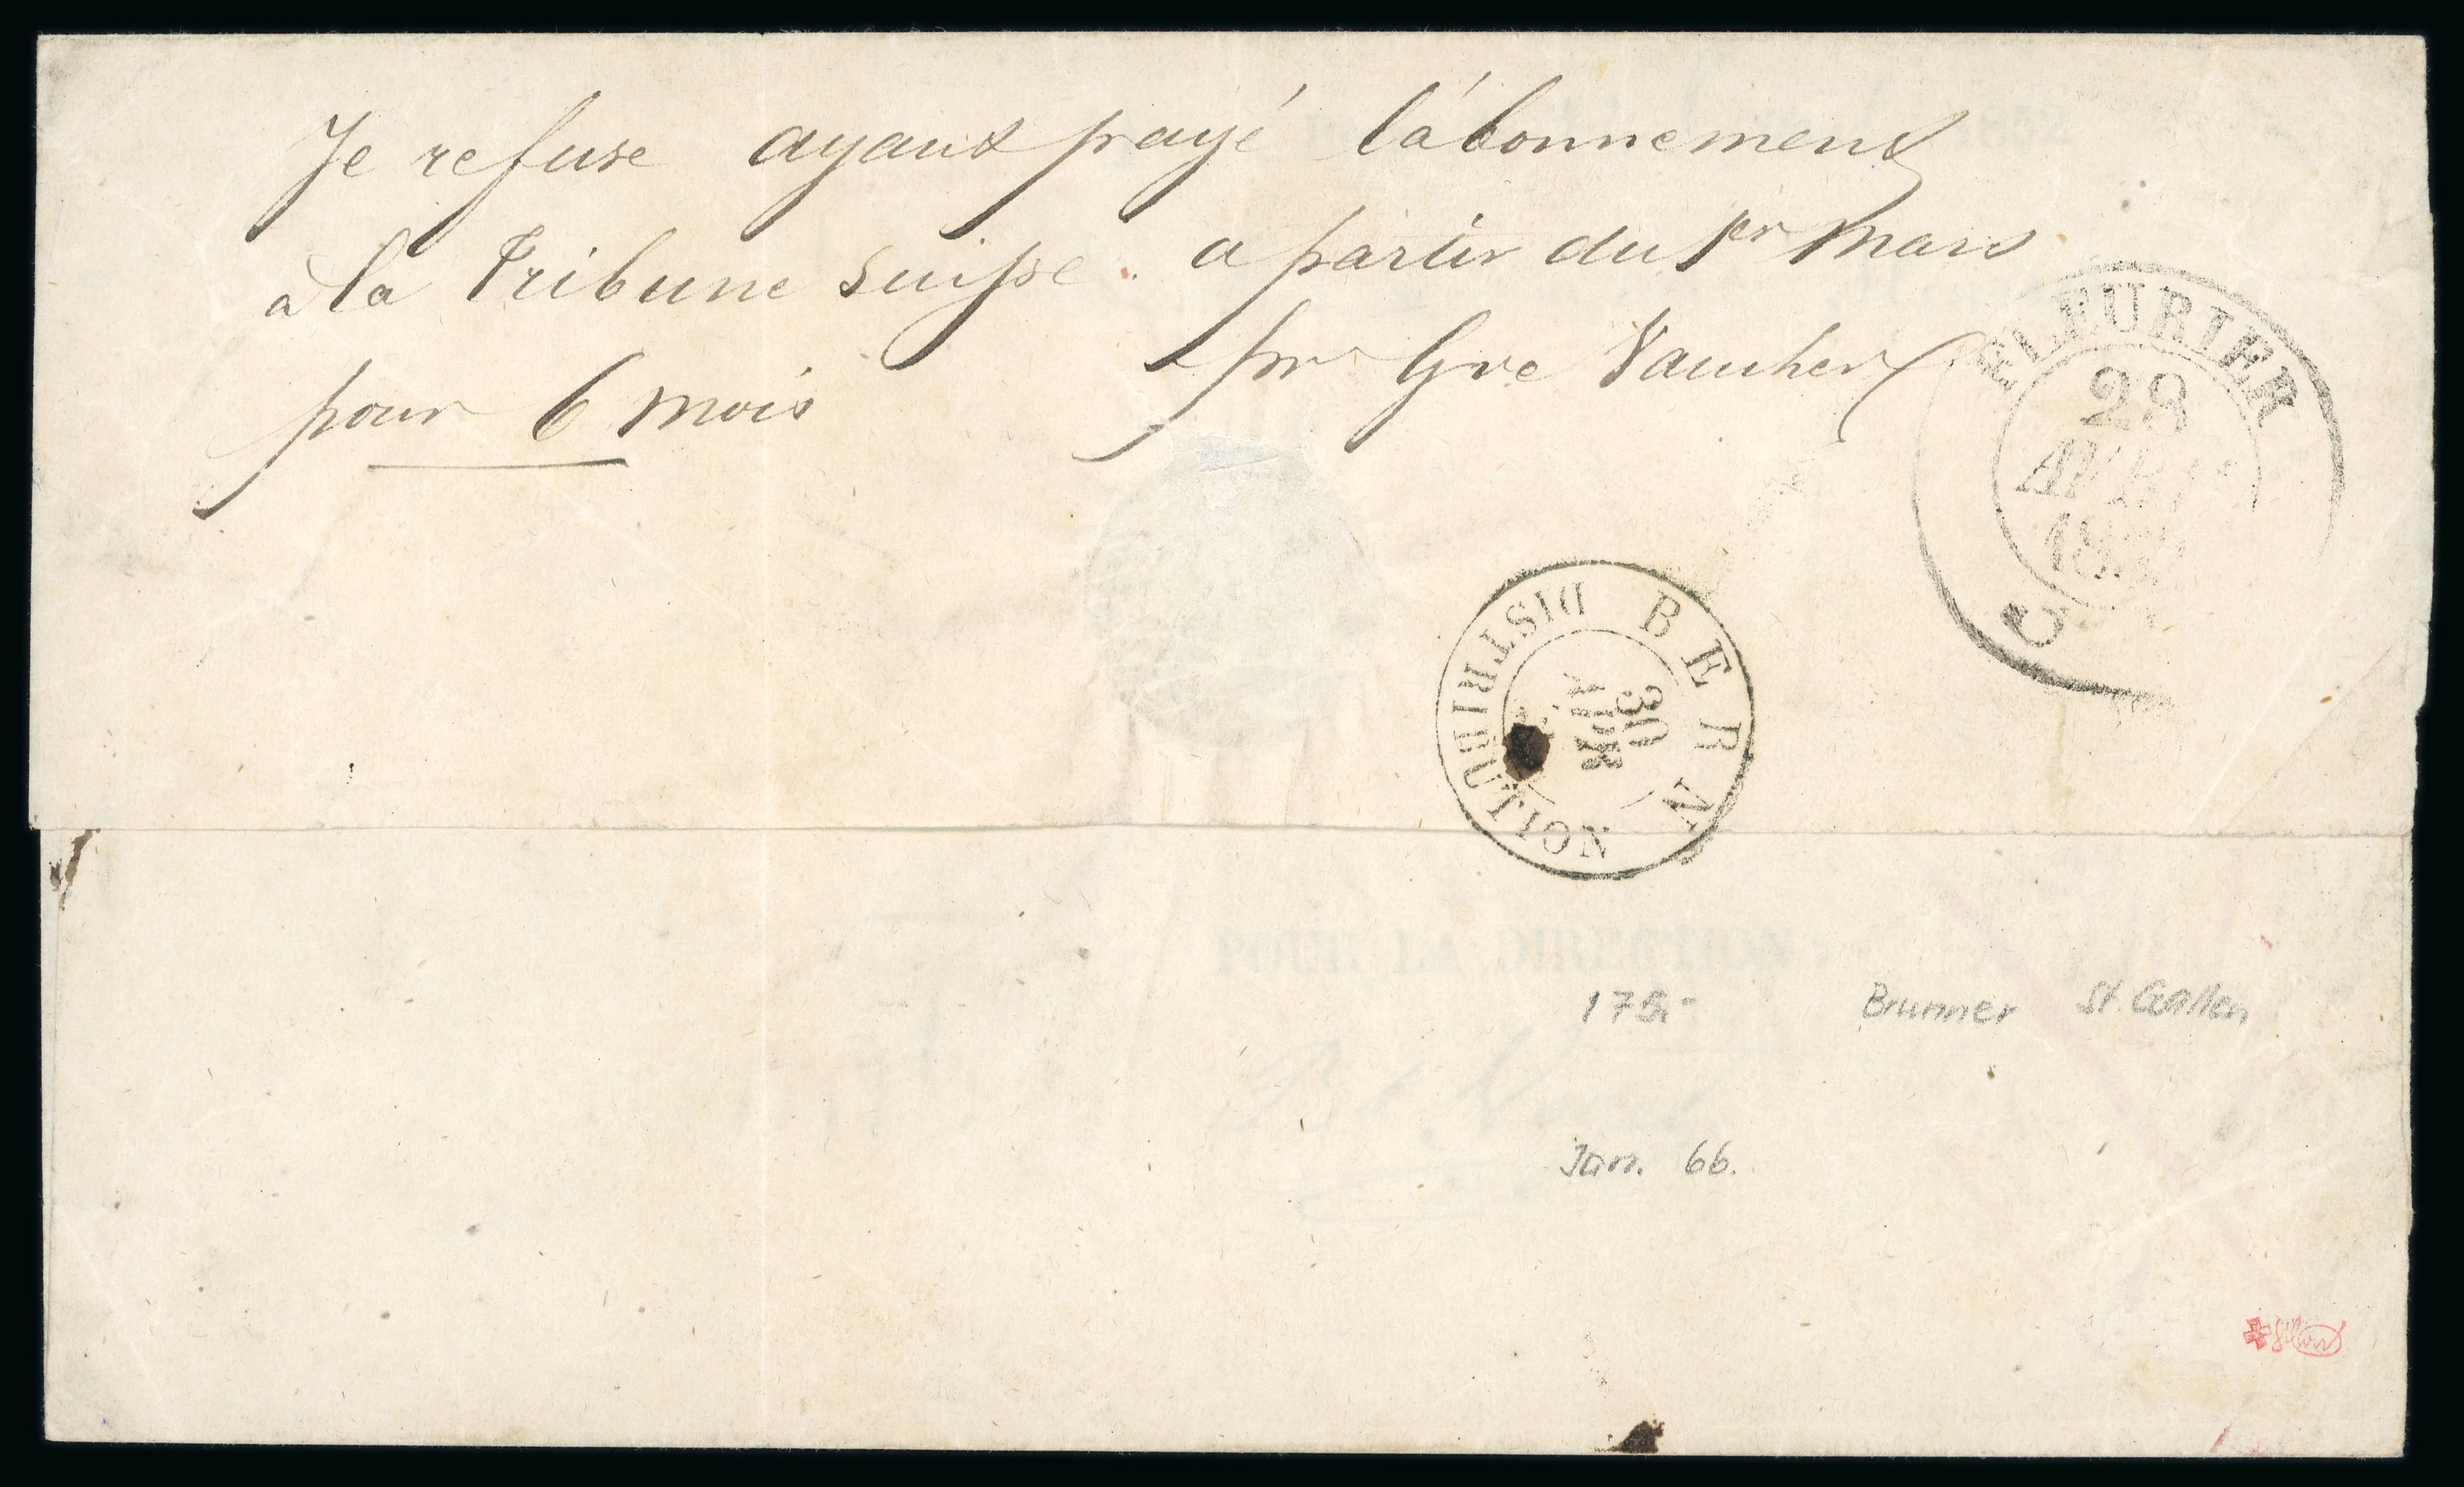 Je refuse ayant payé l'abonnement
à la Tribune Suisse. a partir du 1er Mars
pour 6 mois
pr Gve Vaucher
FLEURIER
29
AVRIL
BERN
DISTRIBUTION
30
AVR
POUR LA DIRECTION
175.-
Brunner St. Gallen
Jan. 66.